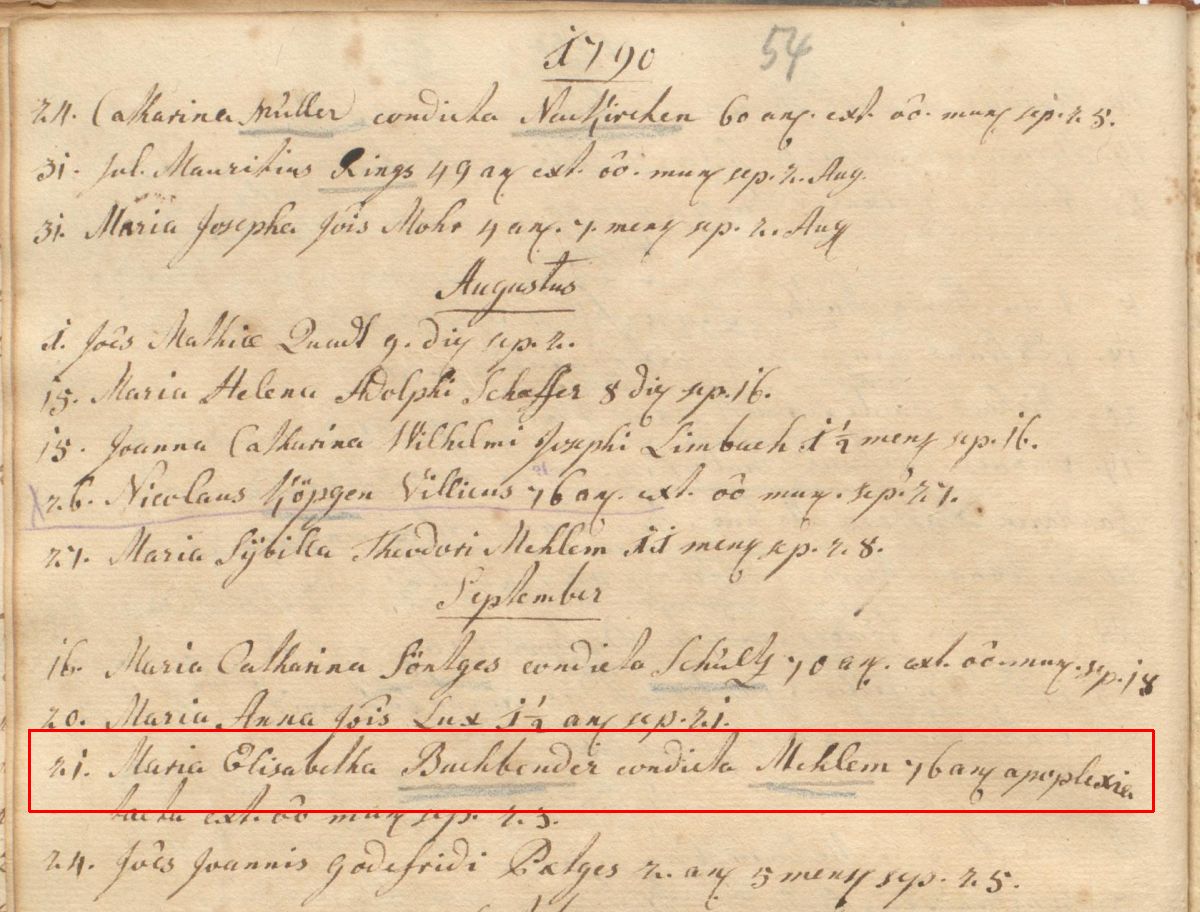 1790 54
24. Catharina Müller condicta Neukirchen 60 an. ext. oô. mun sep. 25.
31. Jul. Mauritius Rings 49 an ext. oô. mun sep. 2. Aug.
31. Maria Josepha Jois Mohr 4 an. 7. mens sep. 2. Aug
Augustus
1. Joês Mathiæ Quadt 9. die sep. 2.
15. Maria Helena Adolphi Scheffer 8 die sep. 16.
15. Joanna Catharina Wilhelmi Josephi Limbach 1½ mens sep. 16.
26. Nicolaus Köpgen Villicus 76 an. ext. oô mun. sep. 27.
27. Maria Sÿbilla Theodori Mehlem 11 mens sep. 28.
September
16. Maria Catharina Söntges condicta Schültz 70 an. ext. oô. mun. sep. 18
20. Maria Anna Jôis Lux 1½ an sep. 21.
21. Maria Elisabetha Buchbender condicta Mehlem 76 an apoplexia
tacta ext. oô mun sep. 23.
24. Joês Joannis Godefridi Pætges 2. an 5 mens sep. 25.